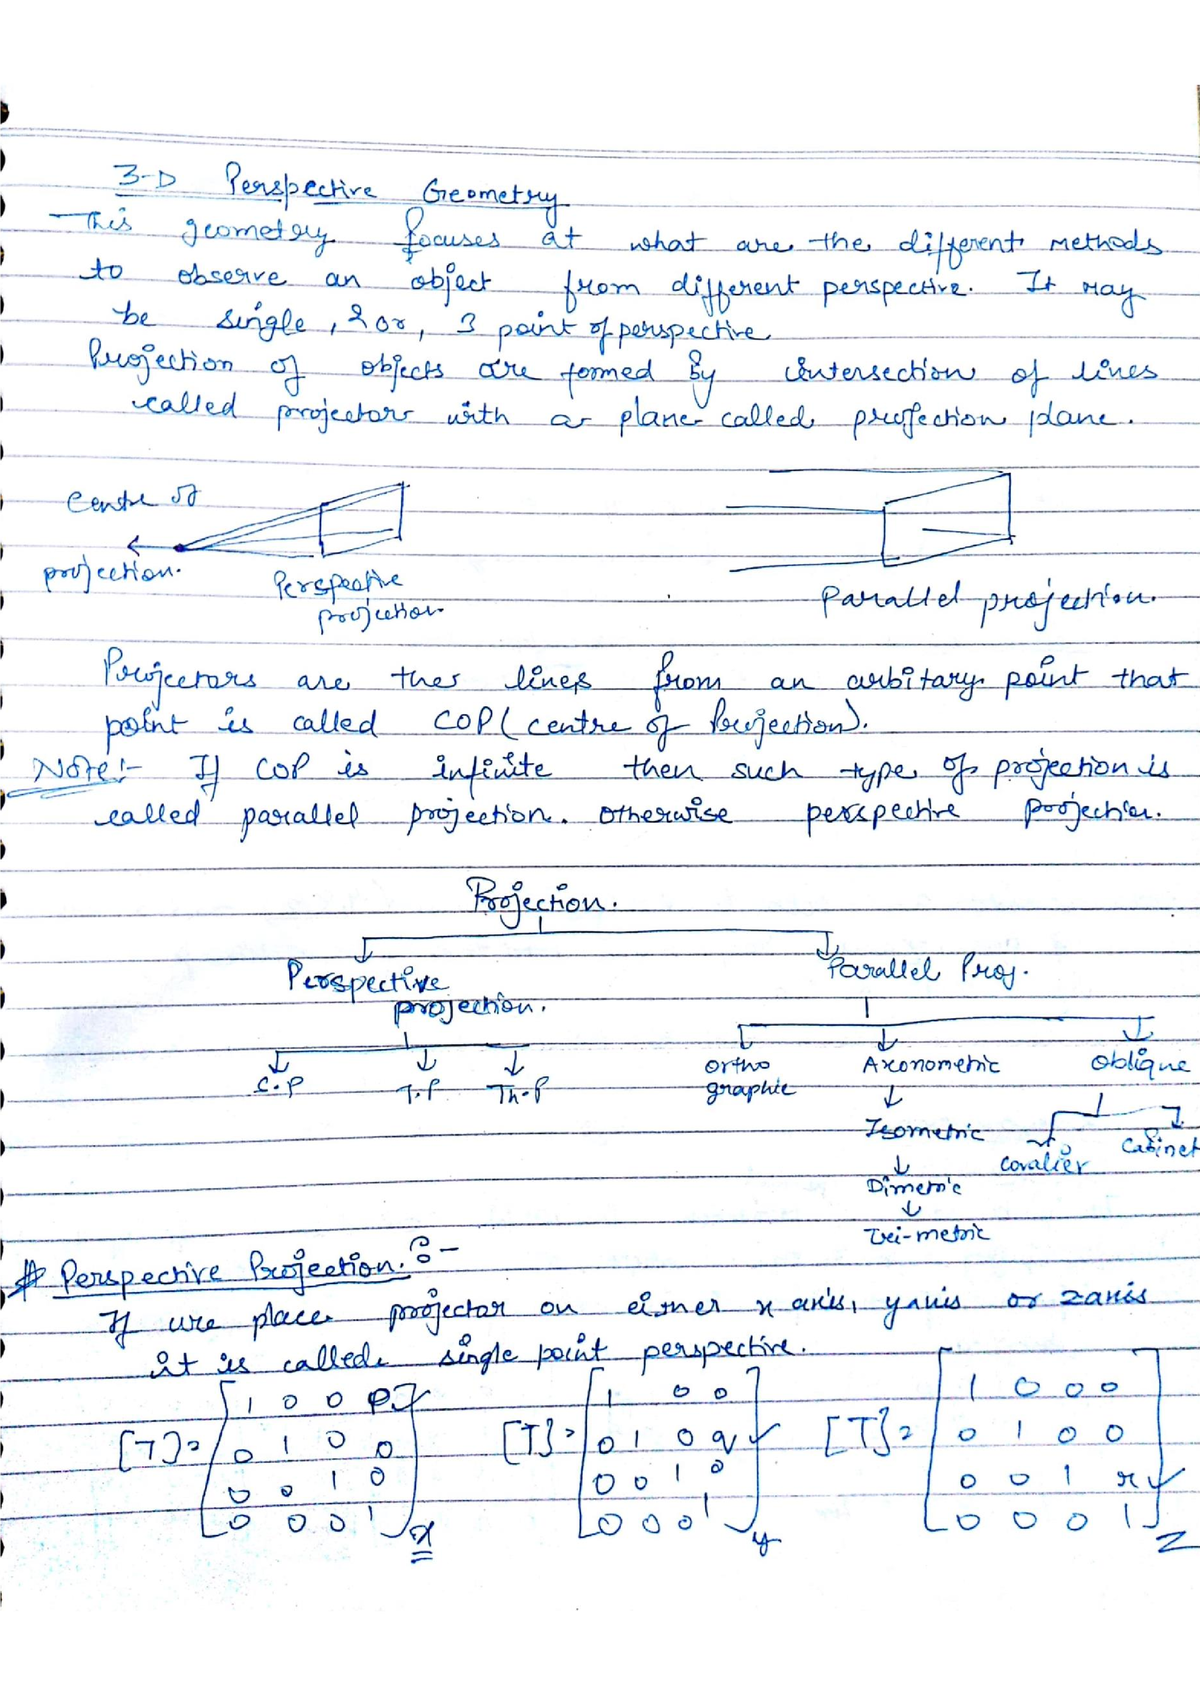 3-D Perspective Geometry
This geometry focuses at what are the different methods
to observe an object from different perspective. It may
be single, 2 or, 3 point of perspective
Projection of objects are formed by intersection of lines
called projectors with a plane called projection plane.
Centre of
projection.
Perspective
projection.
Parallel projection.
Projectors are the lines from an arbitary point that
point is called COP (centre of Projection).
Note:- If COP is infinite then such type of projection is
called parallel projection. otherwise perspective projection.
Projection.
Perspective
projection.
Parallel Proj.
T.P
Th.P
ortho
graphic
Axonometric
Oblique
Isometric
Cavalier
Cabinet
Dimetric
Tri-metric
# Perspective Projection. :-
If we place projectar on either x axis, y axis or z axis
it is called single point perspective.
[T]= 1 0 0 P
0 1 0 0
0 0 1 0
0 0 0 1 x
[T]= 1 0 0
0 1 0 q
0 0 1 0
0 0 0 1 y
[T]= 1 0 0 0
0 1 0 0
0 0 1 r
0 0 0 1 z